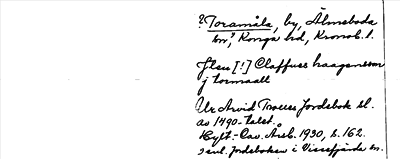 ? Toramåla, by, Älmeboda
sn, Konga hd, Kronob. l.
Jtem [!] Claffues haagensson
j tormaalt
Ur Arvid Trolles Jordebok sl.
av 1490-talet.
Hylt.-Cav. Årsb. 1930, s. 162.
enl. Jordeboken i Vissefjärda sn.